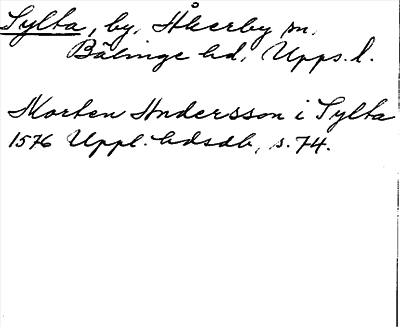 Sylta, by, Åkerby sn.
Bälinge hd, Upps. l.
Morten Andersson i Sylta
1576 Uppl. hdsdb, s. 74.